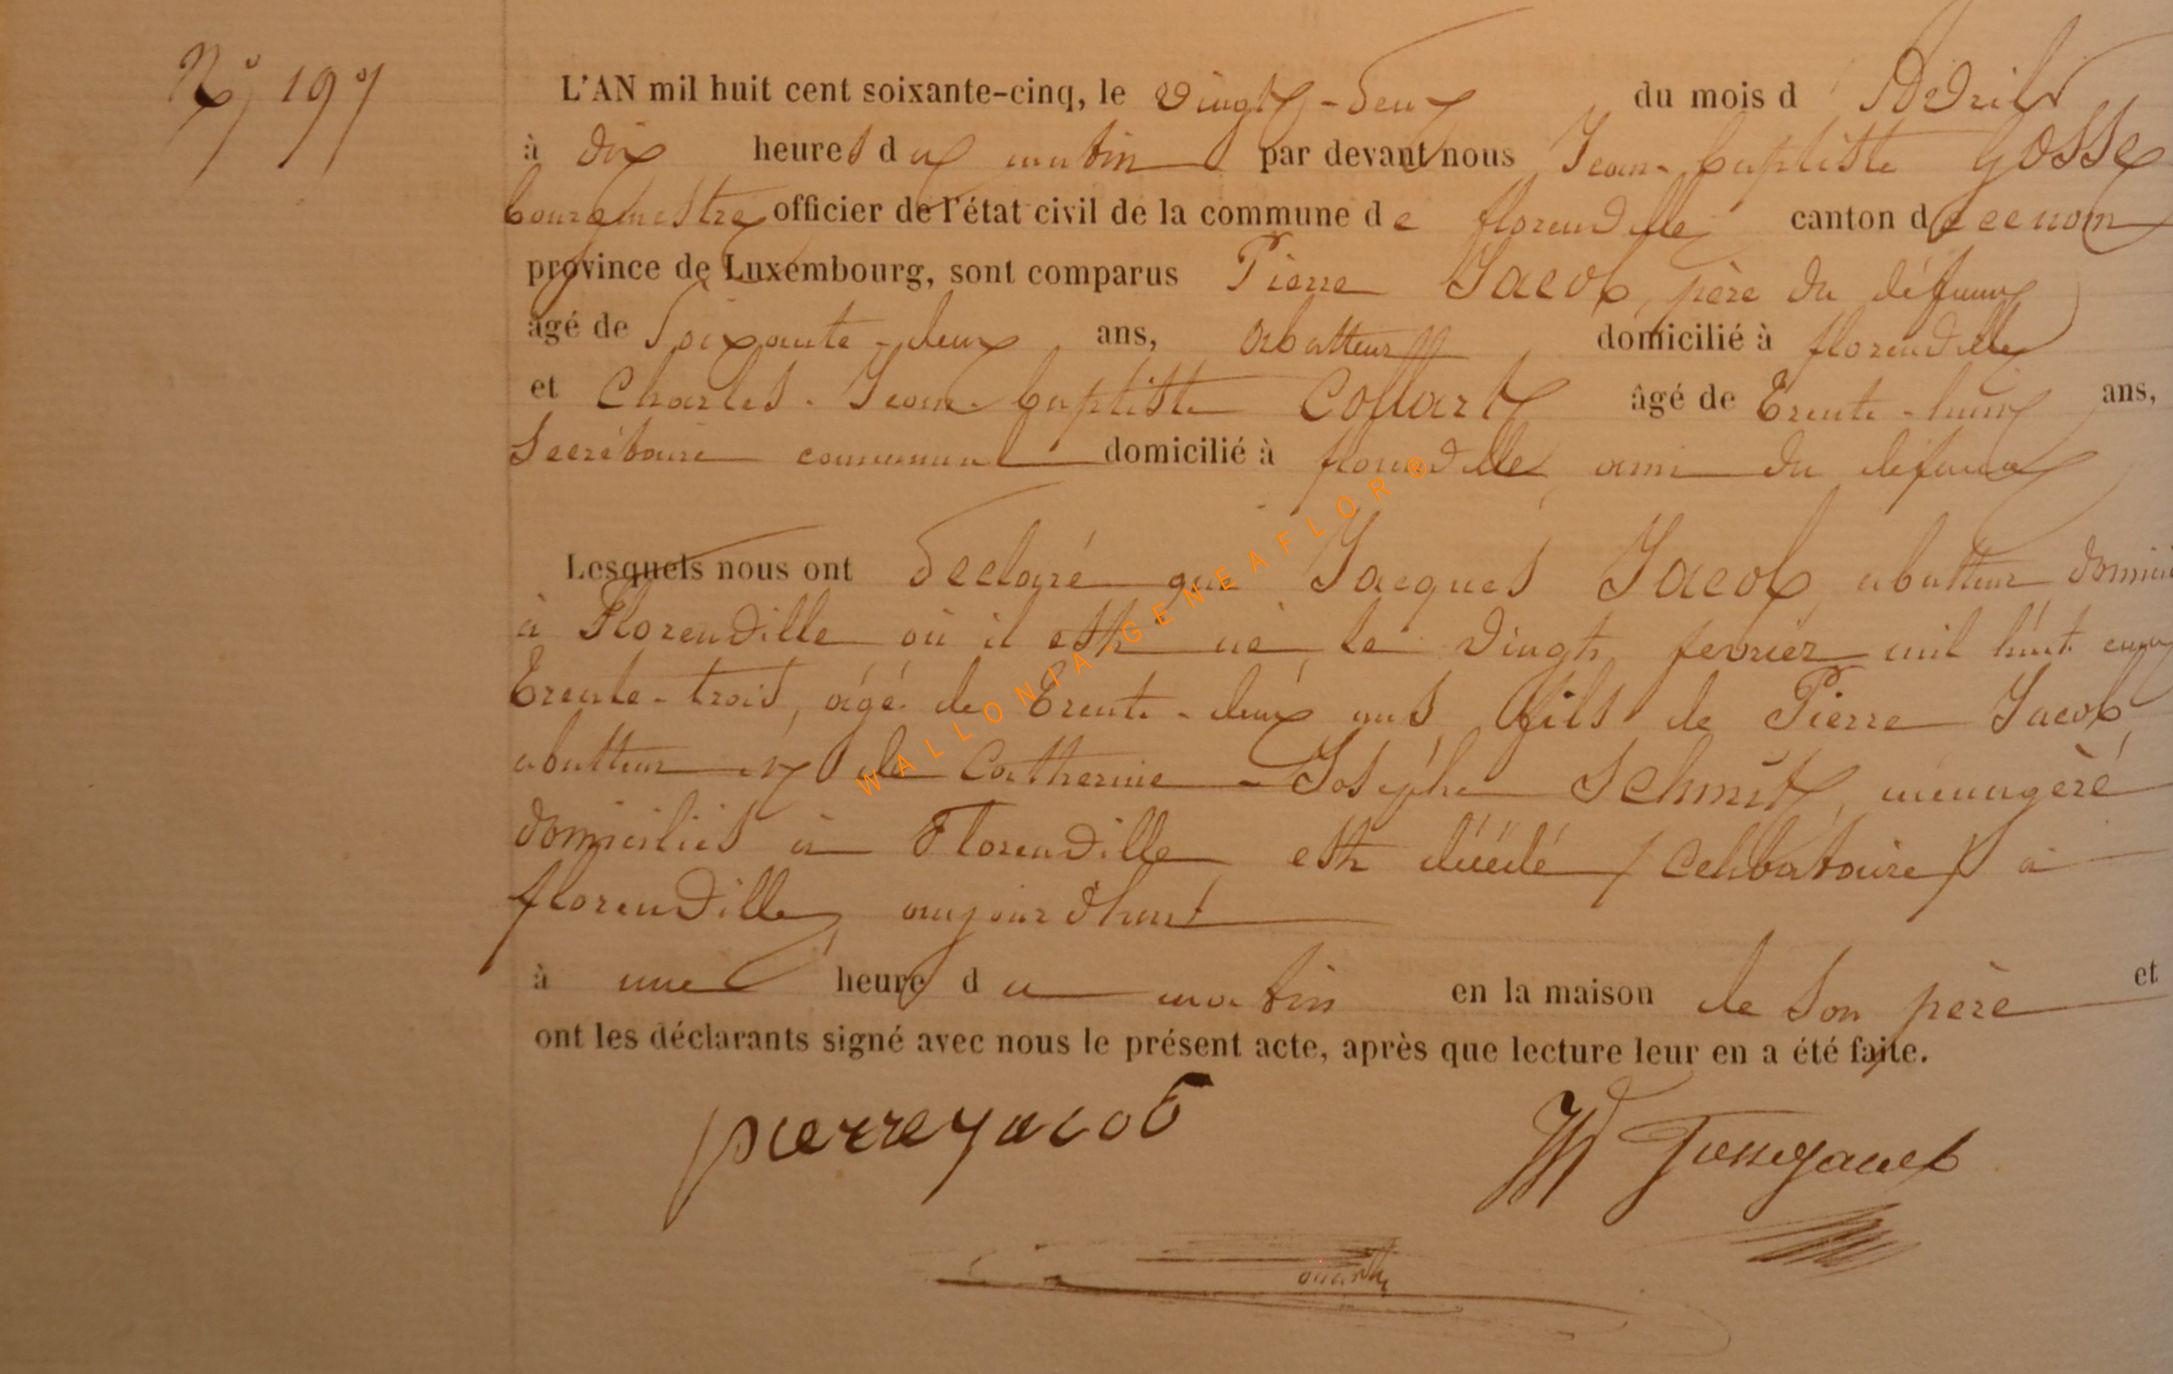 N° 19
L'AN mil huit cent soixante-cinq, le vingt-deux du mois d'Avril
à dix heures du matin par devant nous Jean-baptiste Gosse
bourgmestre officier de l'état civil de la commune de florenville canton de ce nom
province de Luxembourg, sont comparus Pierre Jacob, père du défunt
âgé de Soixante-deux ans, abatteur domicilié à florenville
et Charles-Jean-baptiste Collart âgé de Trente-huit ans,
Secrétaire communal domicilié à florenville, ami du défunt
Lesquels nous ont déclaré que Jacques Jacob, abatteur
à Florenville où il est né le vingt fevrier mil huit cent
Trente-trois, âgé de Trente-deux ans, fils de Pierre Jacob,
abatteur et de Catherine-Josèphe Schmit, ménagère
domiciliés à Florenville est décédé (Celibataire) à
florenville, aujourd'hui
à une heure du matin en la maison de son père et
ont les déclarants signé avec nous le présent acte, après que lecture leur en a été faite.
pierre jacob
WALLONIA-GENEAFLOR®